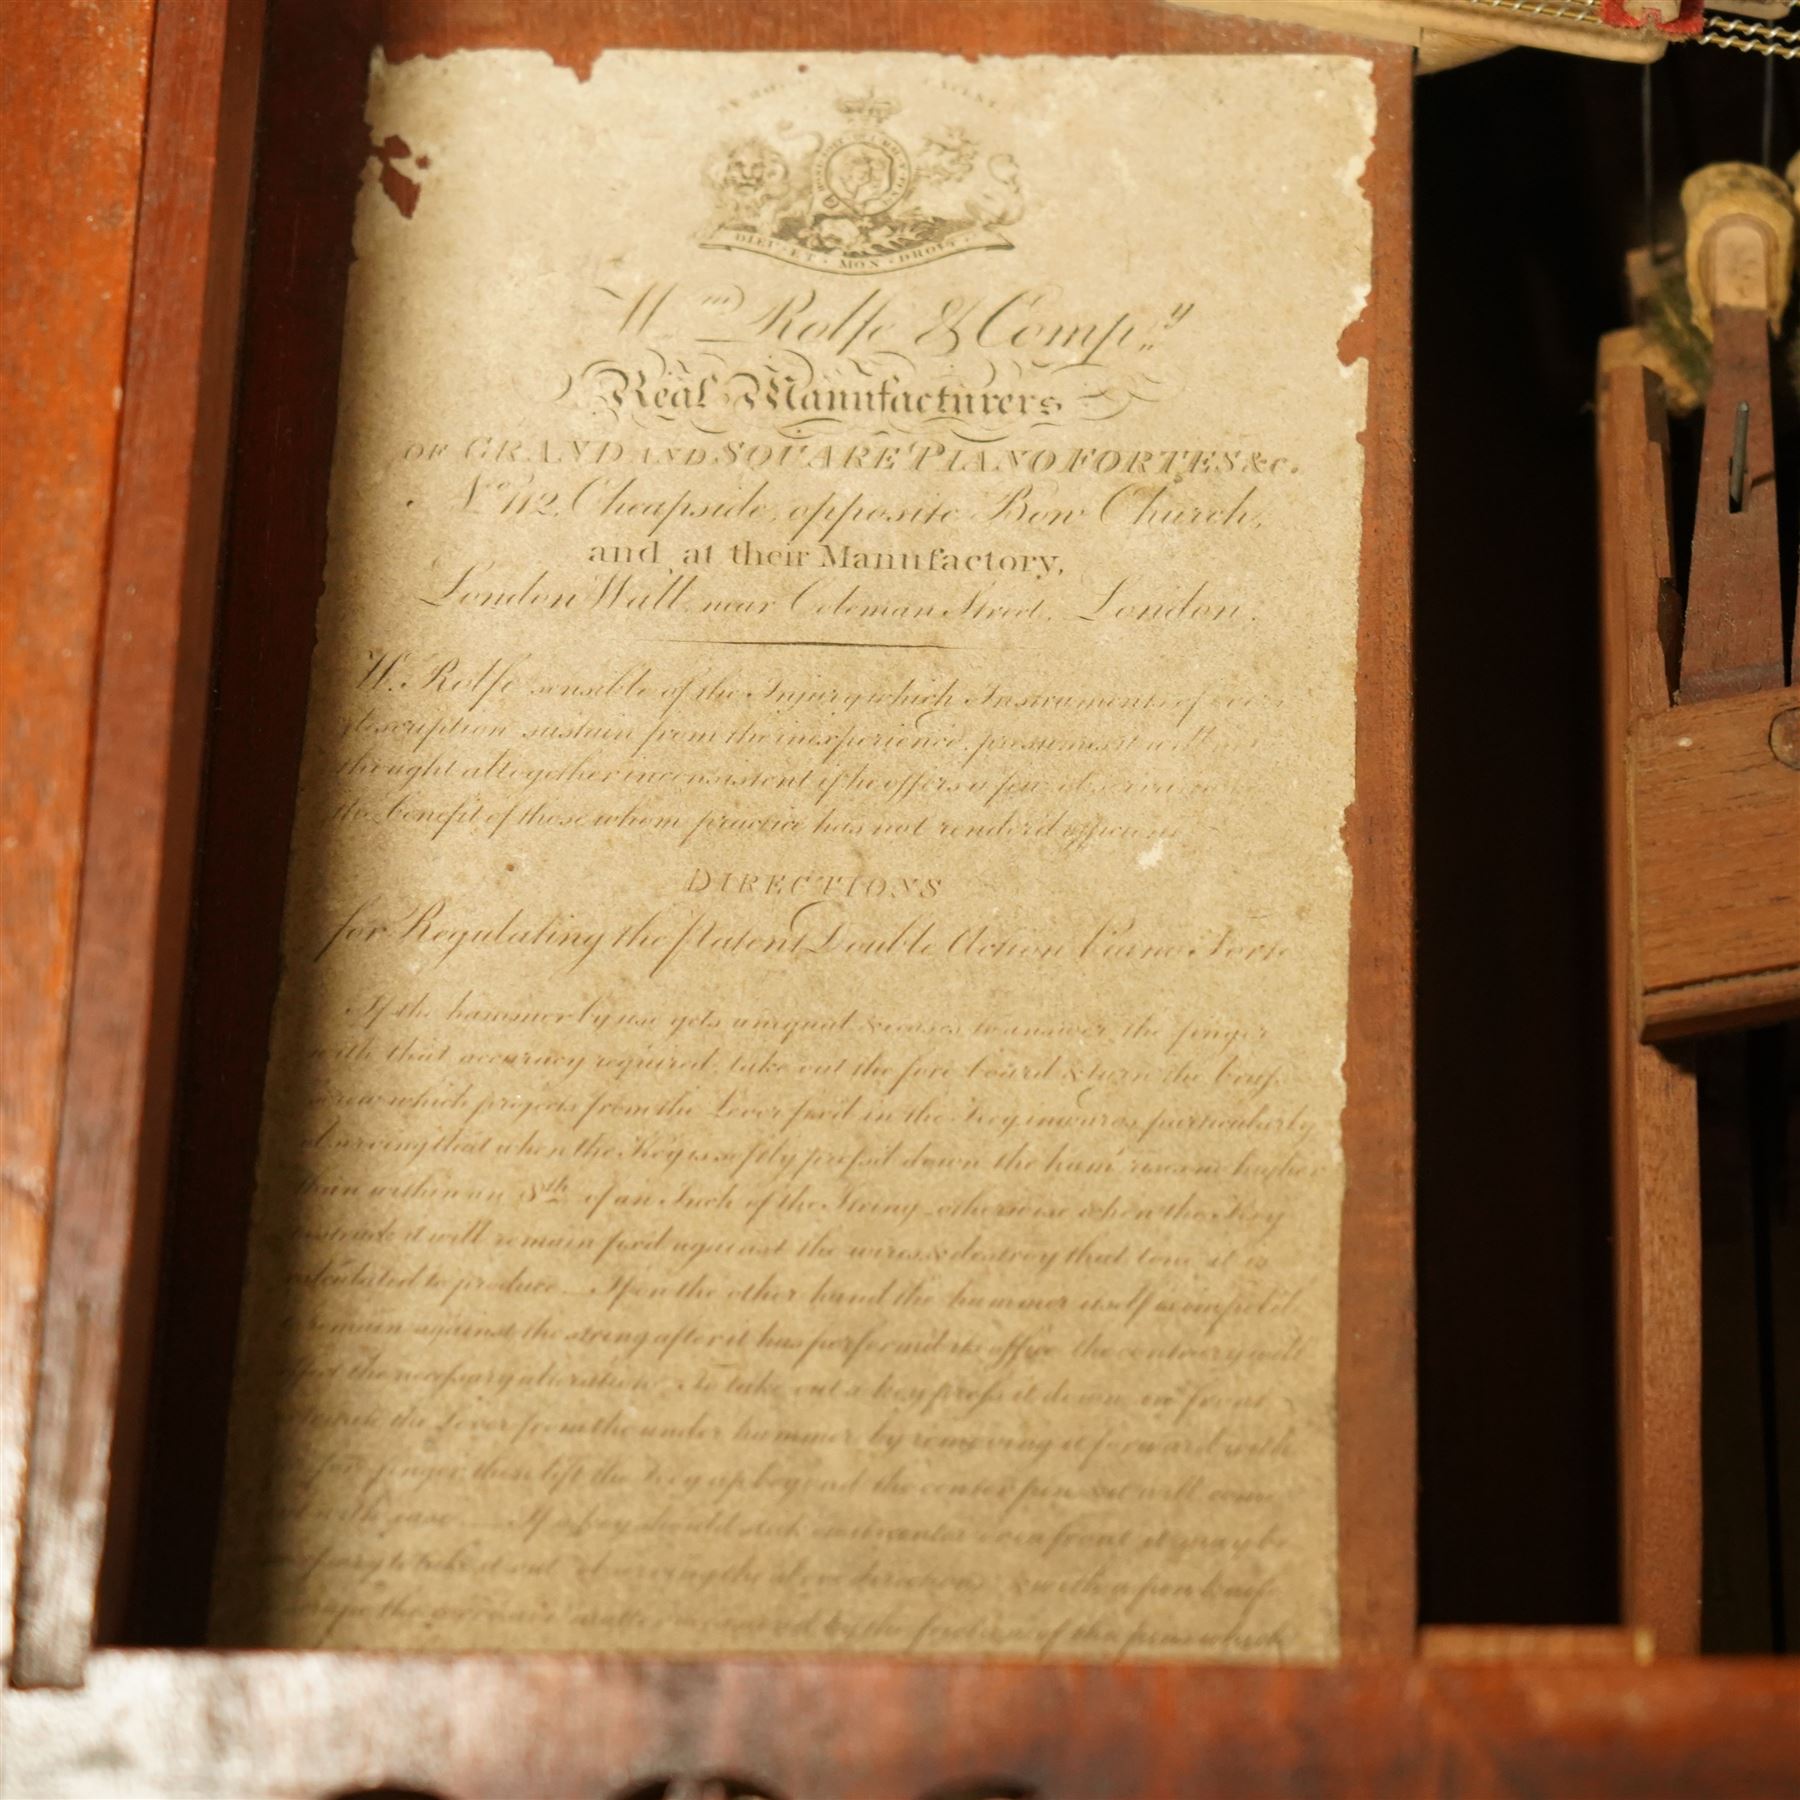 HONI SOIT QUI MAL Y PENSE
DIEU ET MON DROIT
Wm Rolfe & Compy
Real Manufacturers
OF GRAND AND SQUARE PIANO FORTES &c.
No 112, Cheapside, opposite Bow Church,
and at their Manufactory,
London Wall, near Coleman Street, London.
W. Rolfe sensible of the Injury which Instruments of every
description sustain from the inexperienced, presumes it will not be
thought altogether inconsistent if he offers a few observations
the benefit of those whom practice has not render'd efficient
DIRECTIONS
for Regulating the Patent Double Action Piano Forte
If the hammer by use gets unequal & ceases to answer the finger
with that accuracy required, take out the fore board & turn the brass
screw which projects from the Lever fix'd in the Key, inwards, particularly
observing that when the Key is softly press'd down the ham'r rises no higher
than within an 8th of an Inch of the String, otherwise when the Key
is struck it will remain fix'd against the wires & destroy that tone it is
calculated to produce. If on the other hand the hammer itself is impell'd
to remain against the string after it has perform'd its office the contrary will
effect the necessary alteration. To take out a key press it down in front
the Lever from the under hammer, by removing it forward with
fore finger, then lift the Key up beyond the center pin & it will come
out with ease. If a key should stick in center or in front it may be
necessary to take it out observing the above directions & with a pen knife
scrape the matter by the friction of the pins which